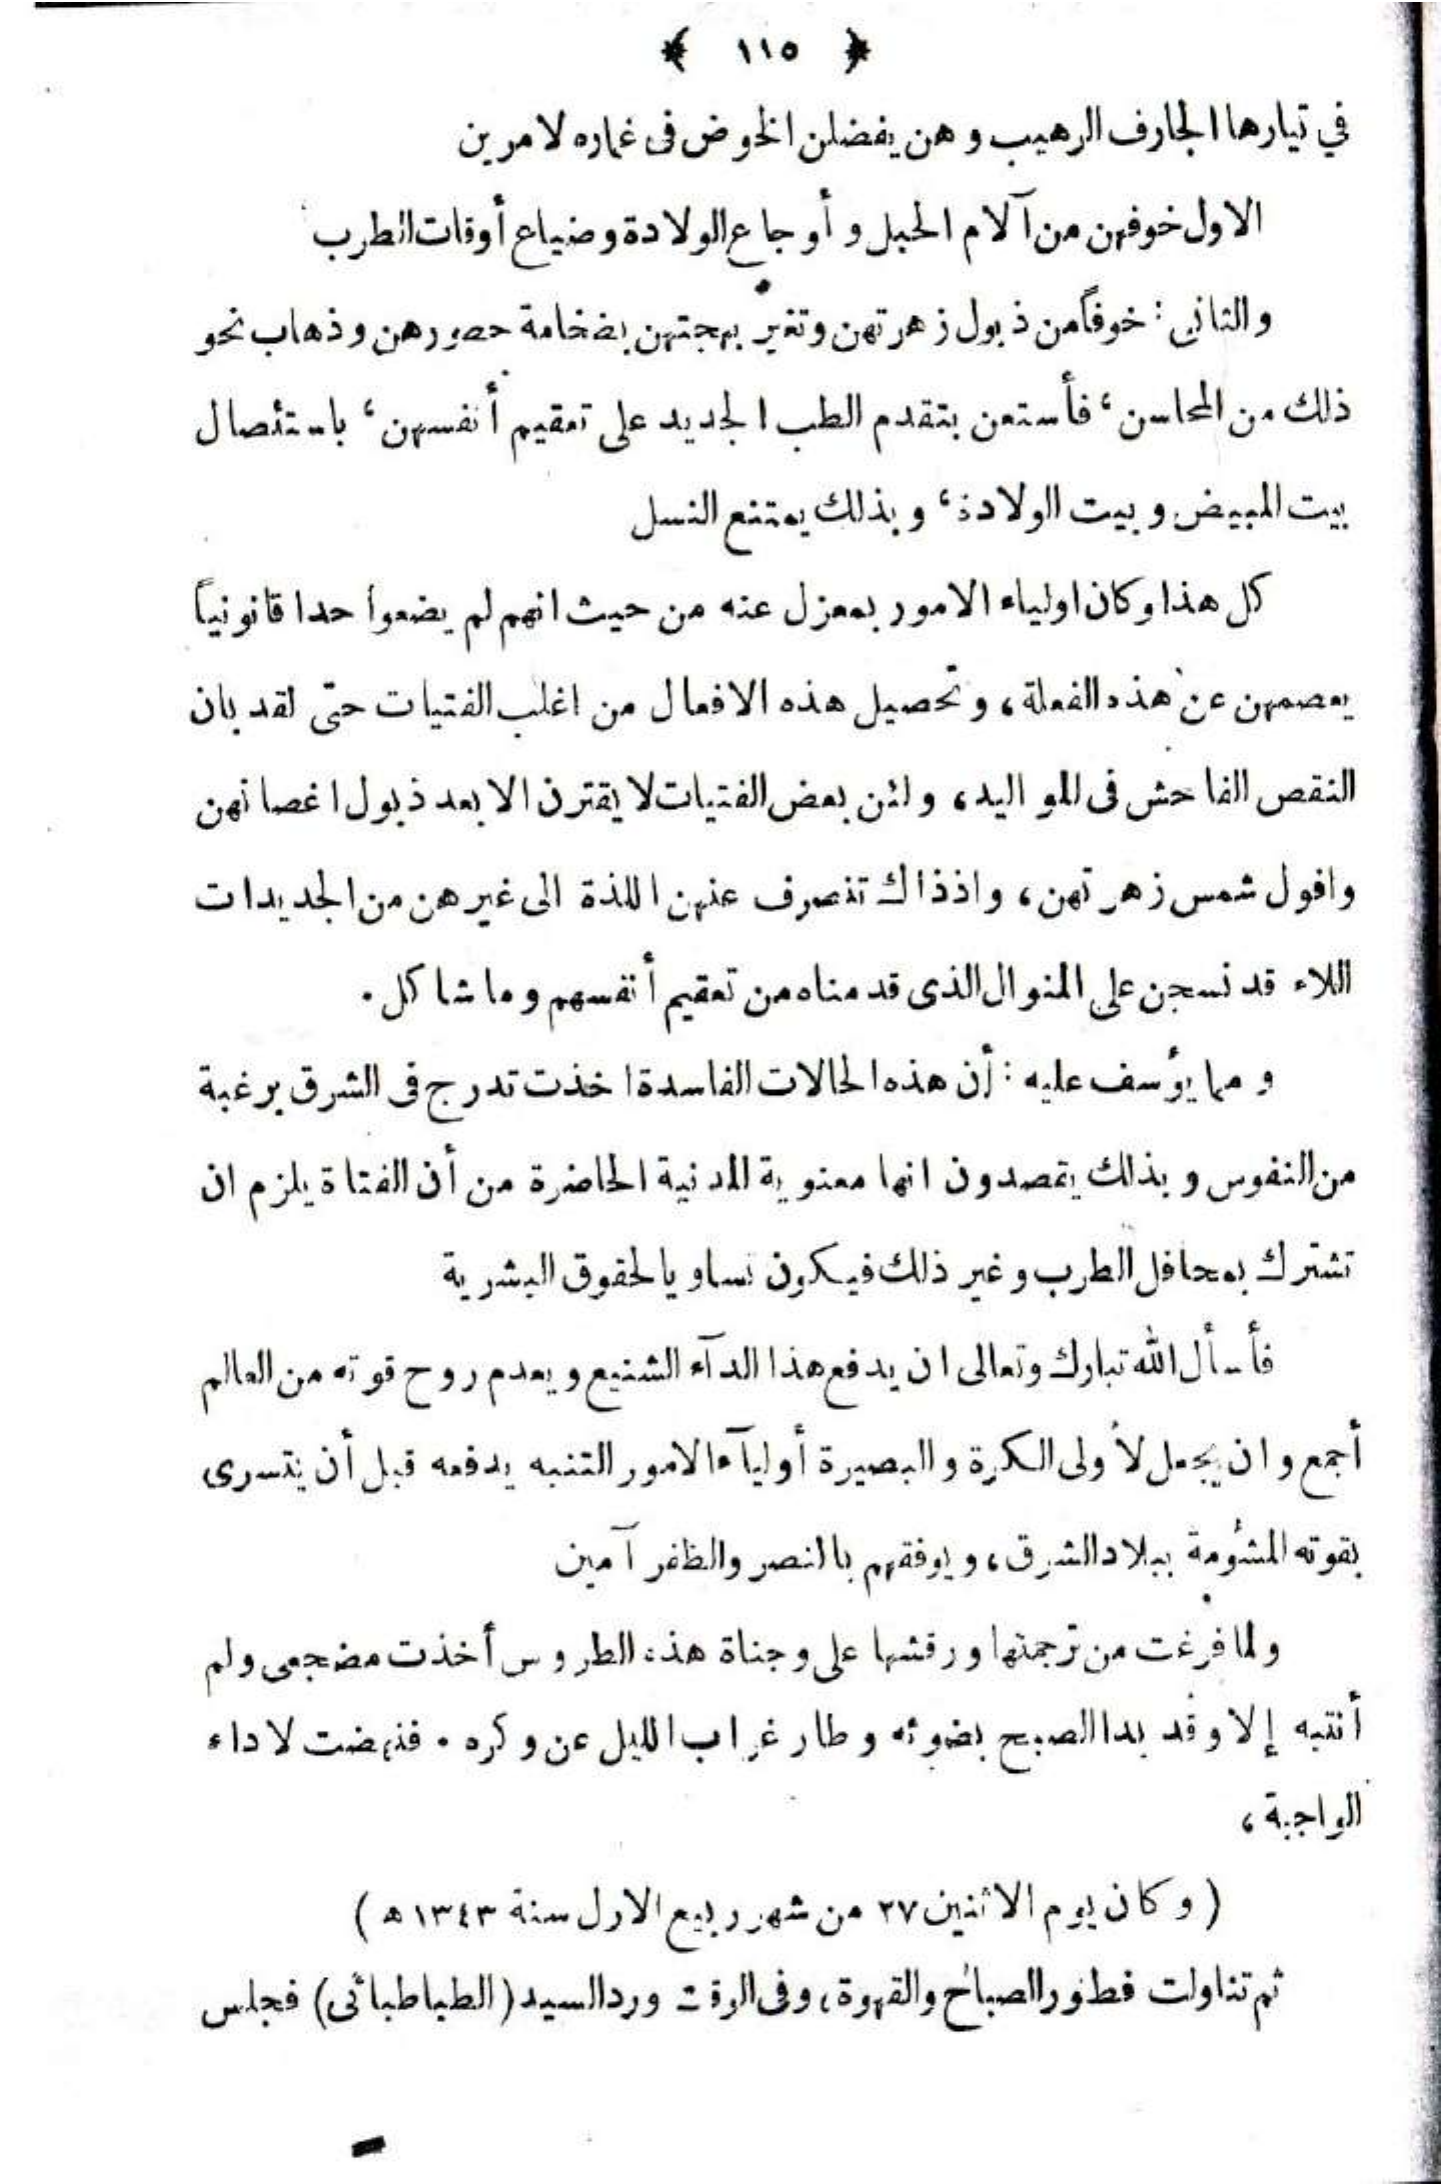 ﴿ ١١٥ ﴾
في تيارها الجارف الرهيب وهن يفضلن الخوض فى غماره لامرين
الاول خوفهن من آلام الحبل وأوجاع الولادة وضياع أوقات الطرب
والثاني : خوفاً من ذبول زهرتهن وتغير بهجتهن بضخامة حصورهن وذهاب نحو
ذلك من المحاسن ، فأستعن بتقدم الطب الجديد على تعقيم أنفسهن ، باستئصال
بيت المبيض وبيت الولادة ، وبذلك يمتنع النسل
كل هذا وكان اولياء الامور بمعزل عنه من حيث انهم لم يضعوا حدا قانونياً
يعصمهن عن هذه الفعلة ، وتحصيل هذه الافعال من اغلب الفتيات حتى لقد بان
النقص الفاحش فى المواليد ، ولئن بعض الفتيات لا يقترن الا بعد ذبول اغصانهن
وافول شمس زهرتهن ، واذذاك تنصرف عنهن اللذة الى غيرهن من الجديدات
اللاء قد نسجن على المنوال الذى قدمناه من تعقيم أنفسهم وما شاكل .
ومما يؤسف عليه : أن هذه الحالات الفاسدة اخذت تدرج فى الشرق برغبة
من النفوس وبذلك يقصدون انها معنوية المدنية الحاضرة من أن الفتاة يلزم ان
تشترك بمحافل الطرب وغير ذلك فيكون تساويا لحقوق البشرية
فأسأل الله تبارك وتعالى ان يدفع هذا الدآء الشنيع ويعدم روح قوته من العالم
أجمع وان يجعل لأولى الكرة والبصيرة أوليآء الامور التنبه يدفعه قبل أن يتسرى
بقوته المشؤمة ببلاد الشرق ، ويوفقهم بالنصر والظفر آمين
ولما فرغت من ترجمتها ورقشها على وجناة هذه الطروس أخذت مضجعى ولم
أنتبه إلا وقد بدا الصبح بضوئه وطار غراب الليل عن وكره . فنهضت لاداء
الواجبة ،
( وكان يوم الاثنين ٢٧ من شهر ربيع الاول سنة ١٣٤٣ ه )
ثم تناولت فطور الصباح والقهوة ، وفى الوقت ورد السيد ( الطباطبائى ) فجلس